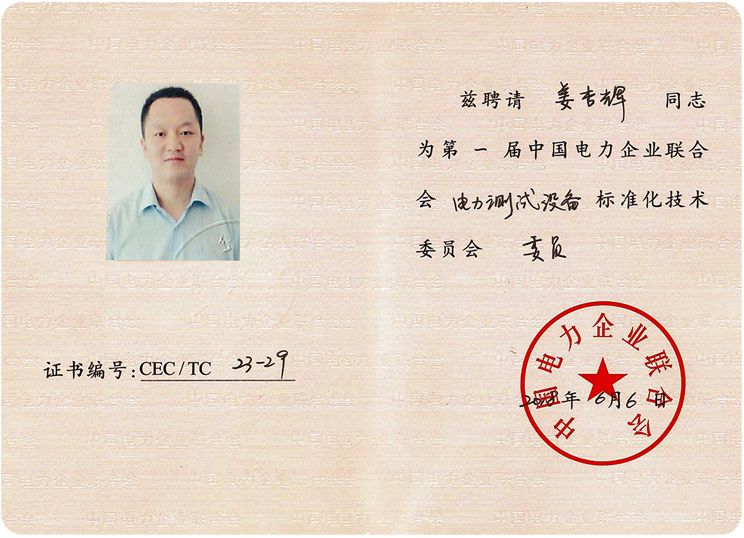 兹聘请 姜杏辉 同志
为第 一 届中国电力企业联合
会 电力测试设备 标准化技术
委员会 委员
证书编号：CEC/TC 23-29
中国电力企业联合会
年 6月6日